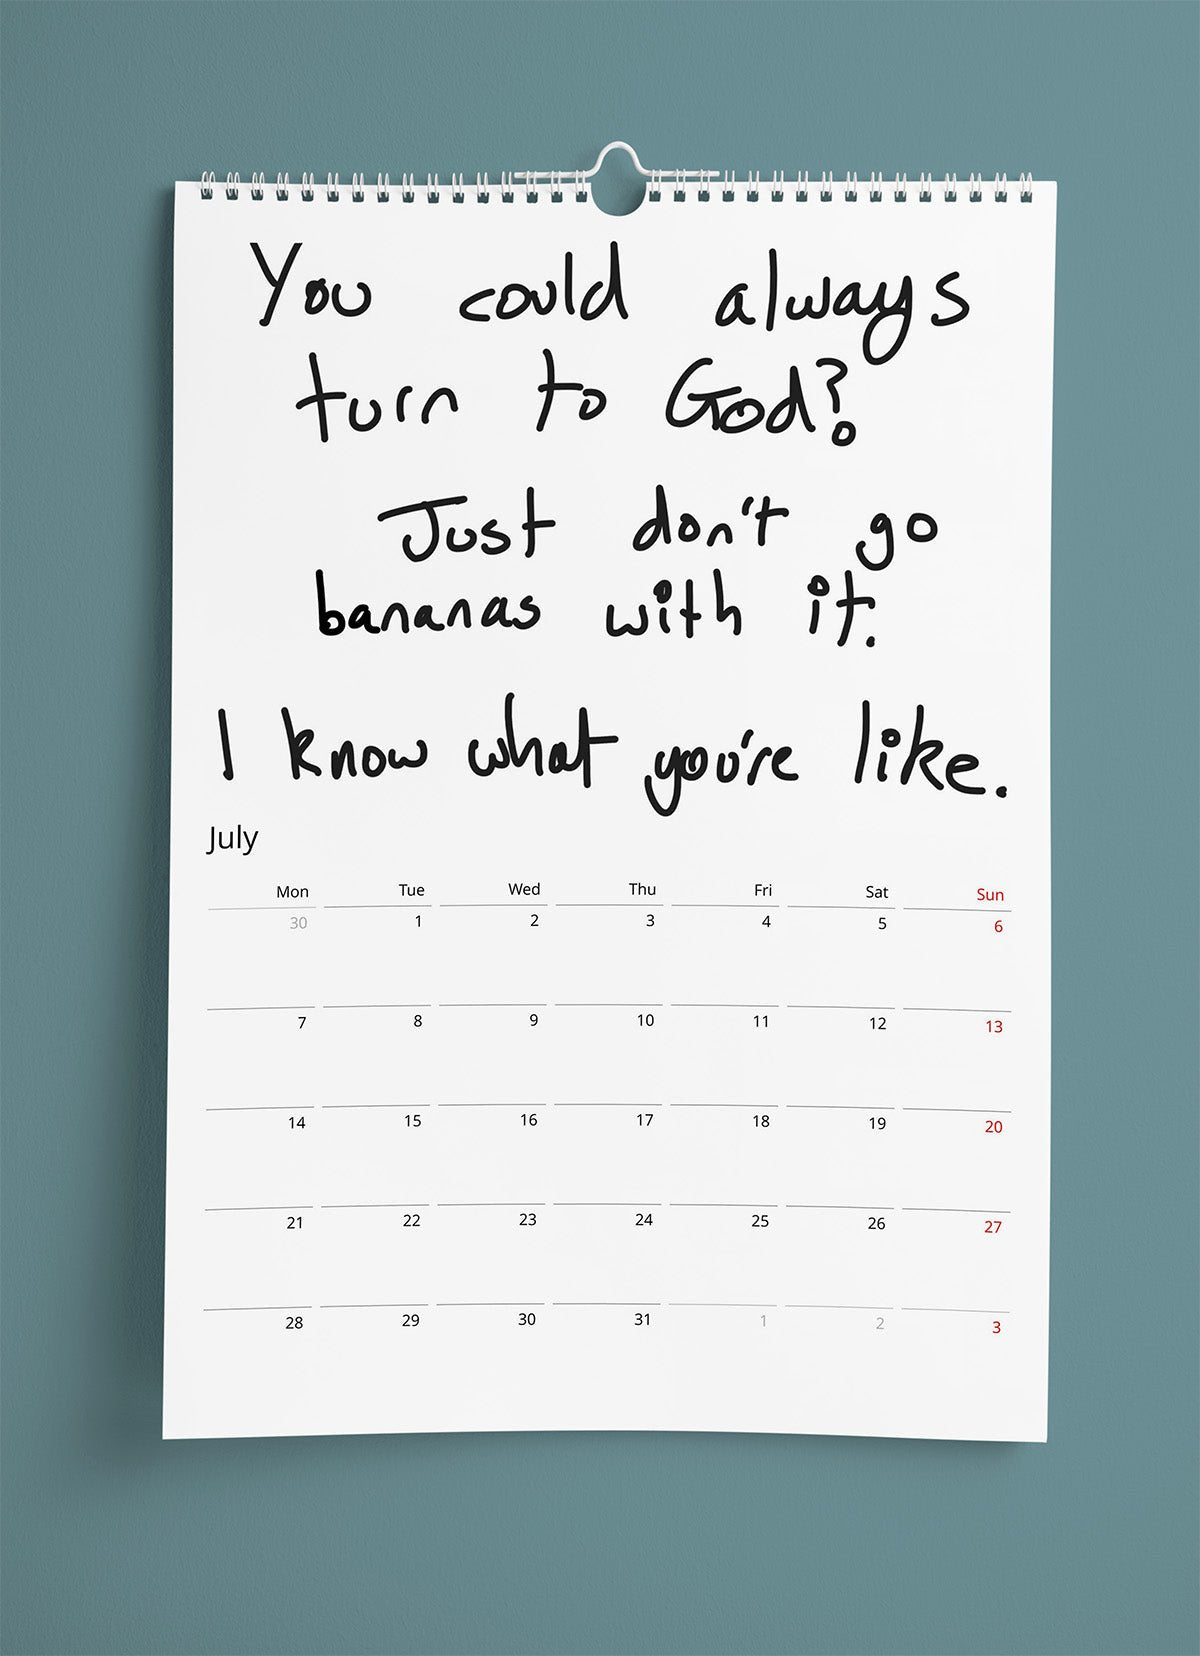 You could always
turn to God?
Just don't go
bananas with it.
I know what you're like.
July
Mon Tue Wed Thu Fri Sat Sun
30 1 2 3 4 5 6
7 8 9 10 11 12 13
14 15 16 17 18 19 20
21 22 23 24 25 26 27
28 29 30 31 1 2 3